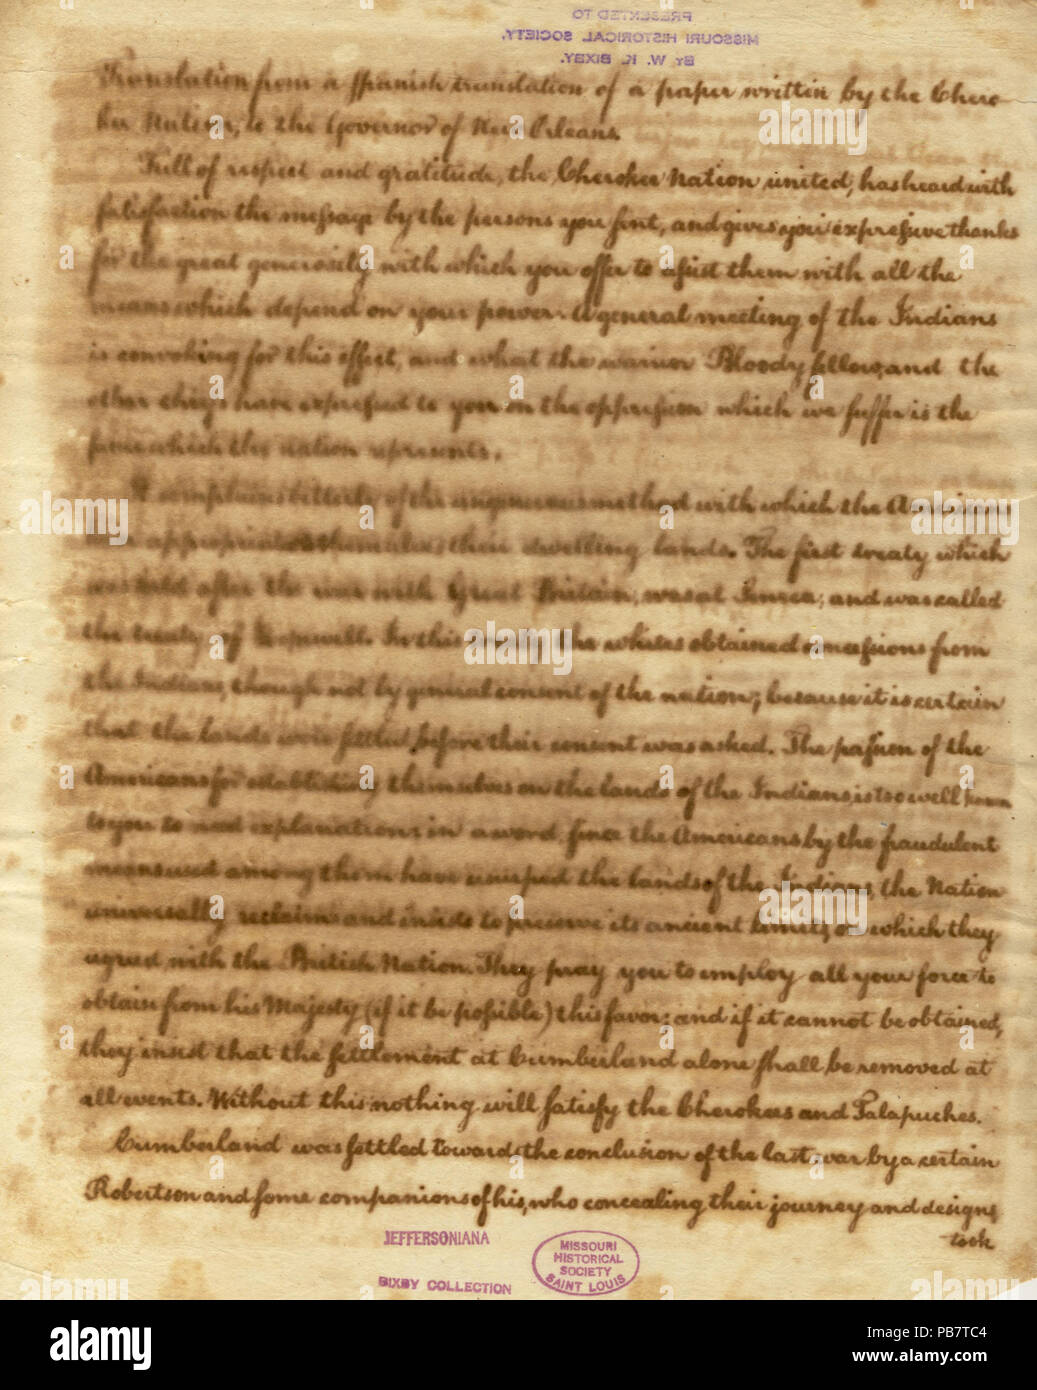 PRESENTED TO
MISSOURI HISTORICAL SOCIETY.
BY W. K. BIXBY.
Translation from a Spanish translation of a paper written by the Chero-
kee Nation, to the Governor of New Orleans.
Full of respect and gratitude, the Cherokee Nation united, has heard with
satisfaction the message by the persons you sent, and gives you expressive thanks
for the great generosity with which you offer to assist them with all the
means which depend on your power. A general meeting of the Indians
is convoking for this effect, and what the warrior Bloody fellow, and the
other chiefs have expressed to you on the oppression which we suffer is the
same which the nation represents.
It complains bitterly of the ungenerous method with which the Americans
appropriate to themselves their dwelling lands. The first treaty which
was held after the war with Great Britain, was at Seneca; and was called
the treaty of Hopewell. In this treaty the whites obtained concessions from
the Indians, though not by general consent of the nation; because it is certain
that the lands were settled before their consent was asked. The passion of the
Americans for establishing themselves on the lands of the Indians, is too well known
to you to need explanation: in a word, since the Americans by the fraudulent
means used among them have usurped the lands of the Indians, the Nation
universally reclaims and insists to preserve its ancient limits, on which they
agreed with the British Nation. They pray you to employ all your force to
obtain from his Majesty (if it be possible) this favor: and if it cannot be obtained,
they insist that the settlement at Cumberland alone shall be removed at
all events. Without this nothing will satisfy the Cherokees and Talapuches.
Cumberland was settled towards the conclusion of the last war by a certain
Robertson and some companions of his, who concealing their journey and designs,
took
JEFFERSONIANA
BIXBY COLLECTION
MISSOURI
HISTORICAL
SOCIETY
SAINT LOUIS
alamy
Image ID: PB7TC4
www.alamy.com